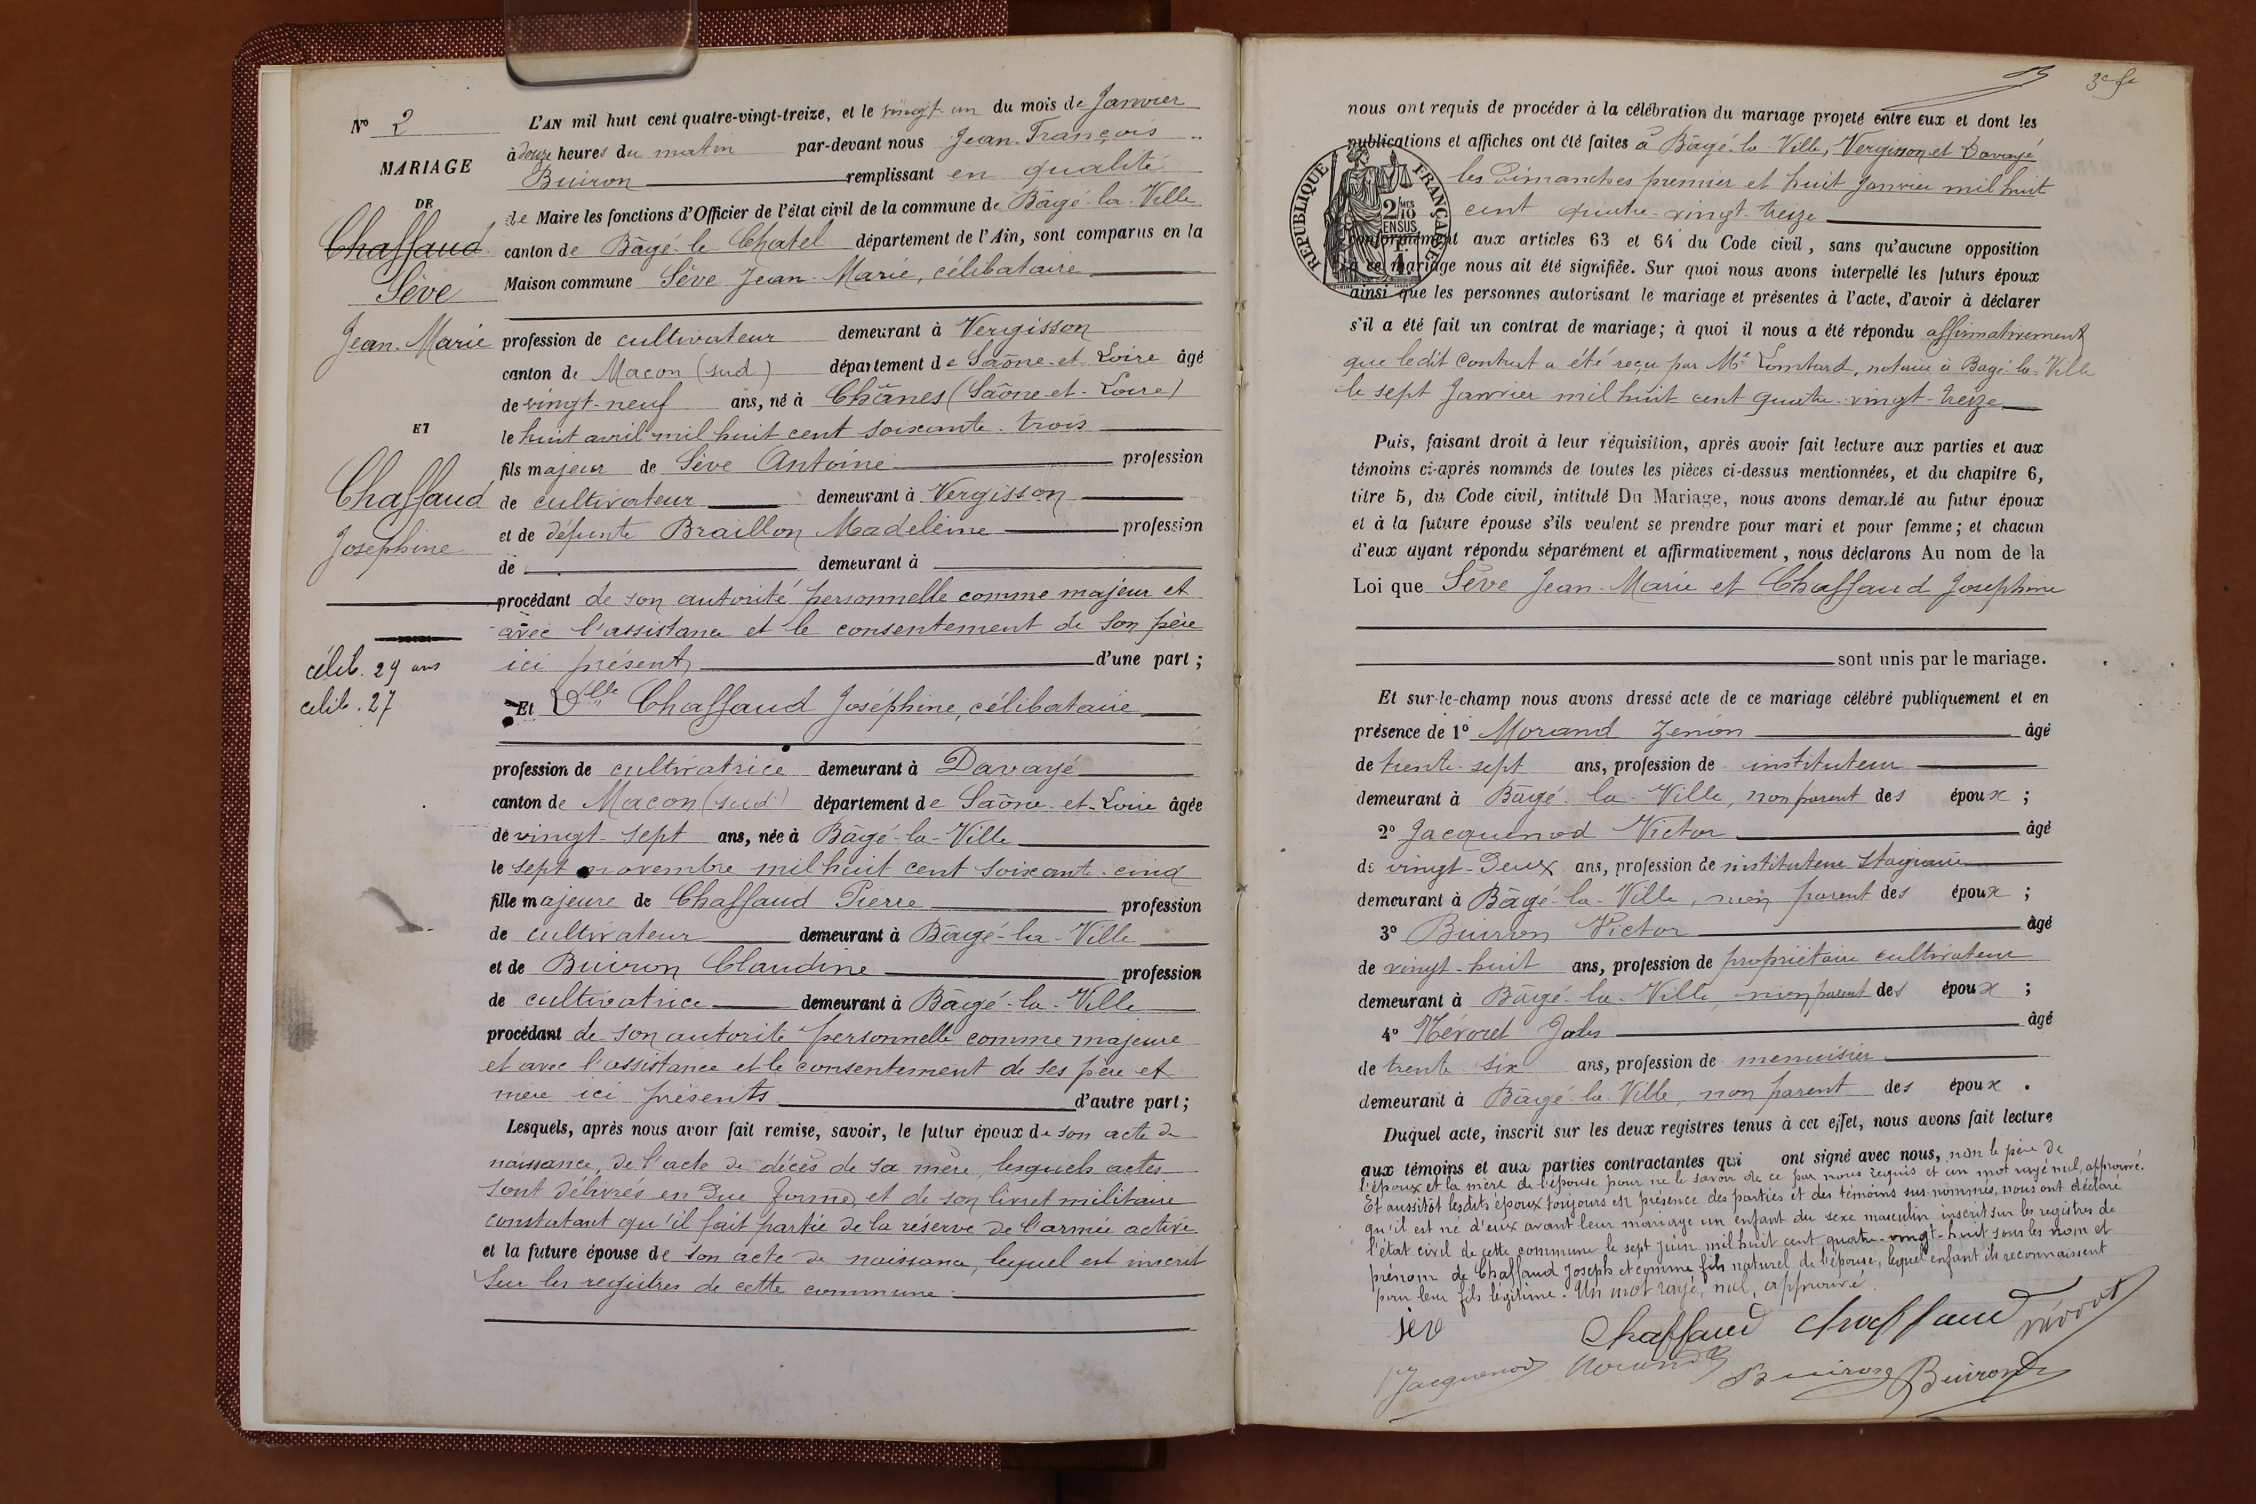 N° 2
MARIAGE
DE
Chaffaud
Sève
Jean-Marie
ET
Chaffaud
Joséphine
célib. 29 ans
célib. 27
L'AN mil huit cent quatre-vingt-treize, et le vingt-un du mois de Janvier
à douze heures du matin par-devant nous Jean-François
Buiron remplissant en qualité
de Maire les fonctions d'Officier de l'état civil de la commune de Bâgé-la-Ville
canton de Bâgé-le-Chatel département de l'Ain, sont comparus en la
Maison commune Sève Jean-Marie, célibataire
profession de cultivateur demeurant à Vergisson
canton de Macon (sud) département de Saône-et-Loire âgé
de vingt-neuf ans, né à Chânes (Saône-et-Loire)
le huit avril mil huit cent soixante-trois
fils majeur de Sève Antoine profession
de cultivateur demeurant à Vergisson
et de défunte Braillon Madeleine profession
de demeurant à
procédant de son autorité personnelle comme majeur et
avec l'assistance et le consentement de son père
ici présent, d'une part ;
Et Dlle Chaffaud Joséphine, célibataire
profession de cultivatrice demeurant à Davayé
canton de Macon (sud) département de Saône-et-Loire âgée
de vingt-sept ans, née à Bâgé-la-Ville
le sept novembre mil huit cent soixante-cinq
fille majeure de Chaffaud Pierre profession
de cultivateur demeurant à Bâgé-la-Ville
et de Buiron Claudine profession
de cultivatrice demeurant à Bâgé-la-Ville
procédant de son autorité personnelle comme majeure
et avec l'assistance et le consentement de ses père et
mère ici présents d'autre part ;
Lesquels, après nous avoir fait remise, savoir, le futur époux de son acte de
naissance, de l'acte de décès de sa mère, lesquels actes
sont délivrés en due forme, et de son livret militaire
constatant qu'il fait partie de la réserve de l'armée active
et la future épouse de son acte de naissance, lequel est inscrit
sur les registres de cette commune.
3e fe
nous ont requis de procéder à la célébration du mariage projeté entre eux et dont les
publications et affiches ont été faites à Bâgé-la-Ville, Vergisson et Davayé
les Dimanches premier et huit Janvier mil huit
cent quatre-vingt-treize
RÉPUBLIQUE FRANÇAISE
2/10 MES
EN SUS
conformément aux articles 63 et 64 du Code civil, sans qu'aucune opposition
à ce mariage nous ait été signifiée. Sur quoi nous avons interpellé les futurs époux
ainsi que les personnes autorisant le mariage et présentes à l'acte, d'avoir à déclarer
s'il a été fait un contrat de mariage ; à quoi il nous a été répondu affirmativement
que ledit contrat a été reçu par Me Lombard, notaire à Bagé-la-Ville
le sept Janvier mil huit cent quatre-vingt-treize
Puis, faisant droit à leur réquisition, après avoir fait lecture aux parties et aux
témoins ci-après nommés de toutes les pièces ci-dessus mentionnées, et du chapitre 6,
titre 5, du Code civil, intitulé Du Mariage, nous avons demandé au futur époux
et à la future épouse s'ils veulent se prendre pour mari et pour femme ; et chacun
d'eux ayant répondu séparément et affirmativement, nous déclarons Au nom de la
Loi que Sève Jean-Marie et Chaffaud Joséphine
sont unis par le mariage.
Et sur-le-champ nous avons dressé acte de ce mariage célébré publiquement et en
présence de 1° Morand Zénon âgé
de trente-sept ans, profession de instituteur
demeurant à Bâgé-la-Ville, non parent des époux ;
2° Jacquenod Victor âgé
de vingt-deux ans, profession de instituteur stagiaire
demeurant à Bâgé-la-Ville, non parent des époux ;
3° Buiron Victor âgé
de vingt-huit ans, profession de propriétaire cultivateur
demeurant à Bâgé-la-Ville, non parent des époux ;
4° Névoret Jules âgé
de trente-six ans, profession de menuisier
demeurant à Bâgé-la-Ville, non parent des époux.
Duquel acte, inscrit sur les deux registres tenus à cet effet, nous avons fait lecture
aux témoins et aux parties contractantes qui ont signé avec nous, non le père de
l'époux et la mère de l'épouse pour ne le savoir de ce par nous requis et un mot rayé nul, approuvé.
Et aussitôt lesdits époux toujours en présence des parties et des témoins sus-nommés, nous ont déclaré
qu'il est né d'eux avant leur mariage un enfant du sexe masculin inscrit sur les registres de
l'état civil de cette commune le sept Juin mil huit cent quatre-vingt-huit sous les nom et
prénom de Chaffaud Joseph et comme fils naturel de l'épouse, lequel enfant ils reconnaissent
pour leur fils légitime. Un mot rayé, nul, approuvé
Chaffaud Chaffaud
Jacquenod Morand Buiron Buiron